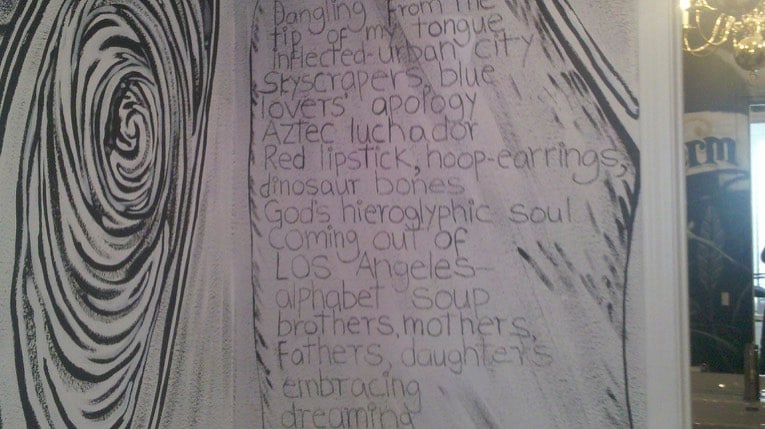 Dangling from the
tip of my tongue
inflected-urban city
skyscrapers, blue
lovers' apology
Aztec luchador
Red lipstick, hoop-earrings,
dinosaur bones
God's hieroglyphic soul
Coming out of
LOS Angeles—
alphabet soup
brothers, mothers,
Fathers, daughters
embracing
dreaming